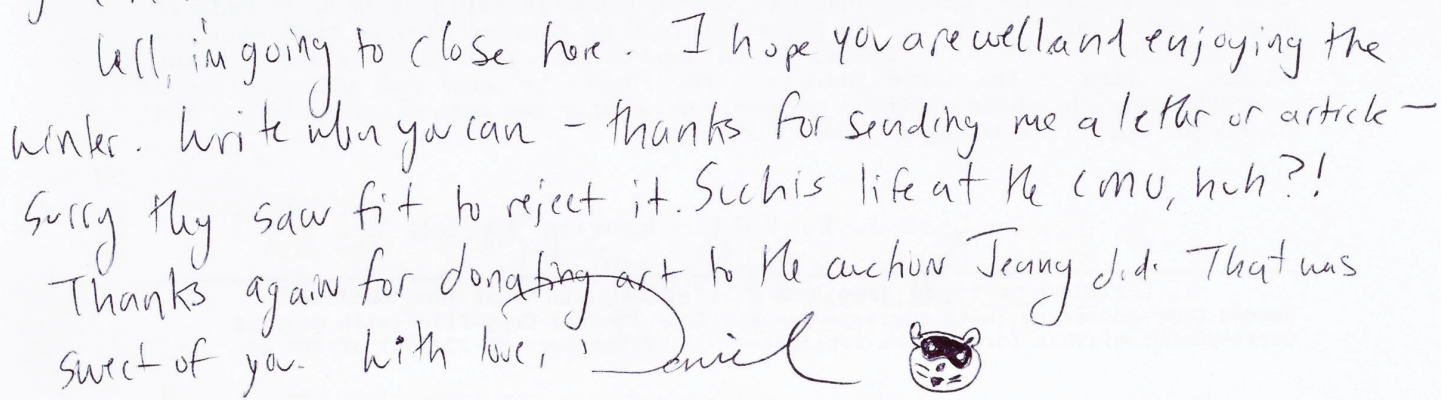 Well, i'm going to close here. I hope you are well and enjoying the
winter. Write when you can – thanks for sending me a letter or article –
Sorry they saw fit to reject it. Such is life at the CMU, huh?!
Thanks again for donating art to the auction Jenny did. That was
sweet of you. With love, Daniel